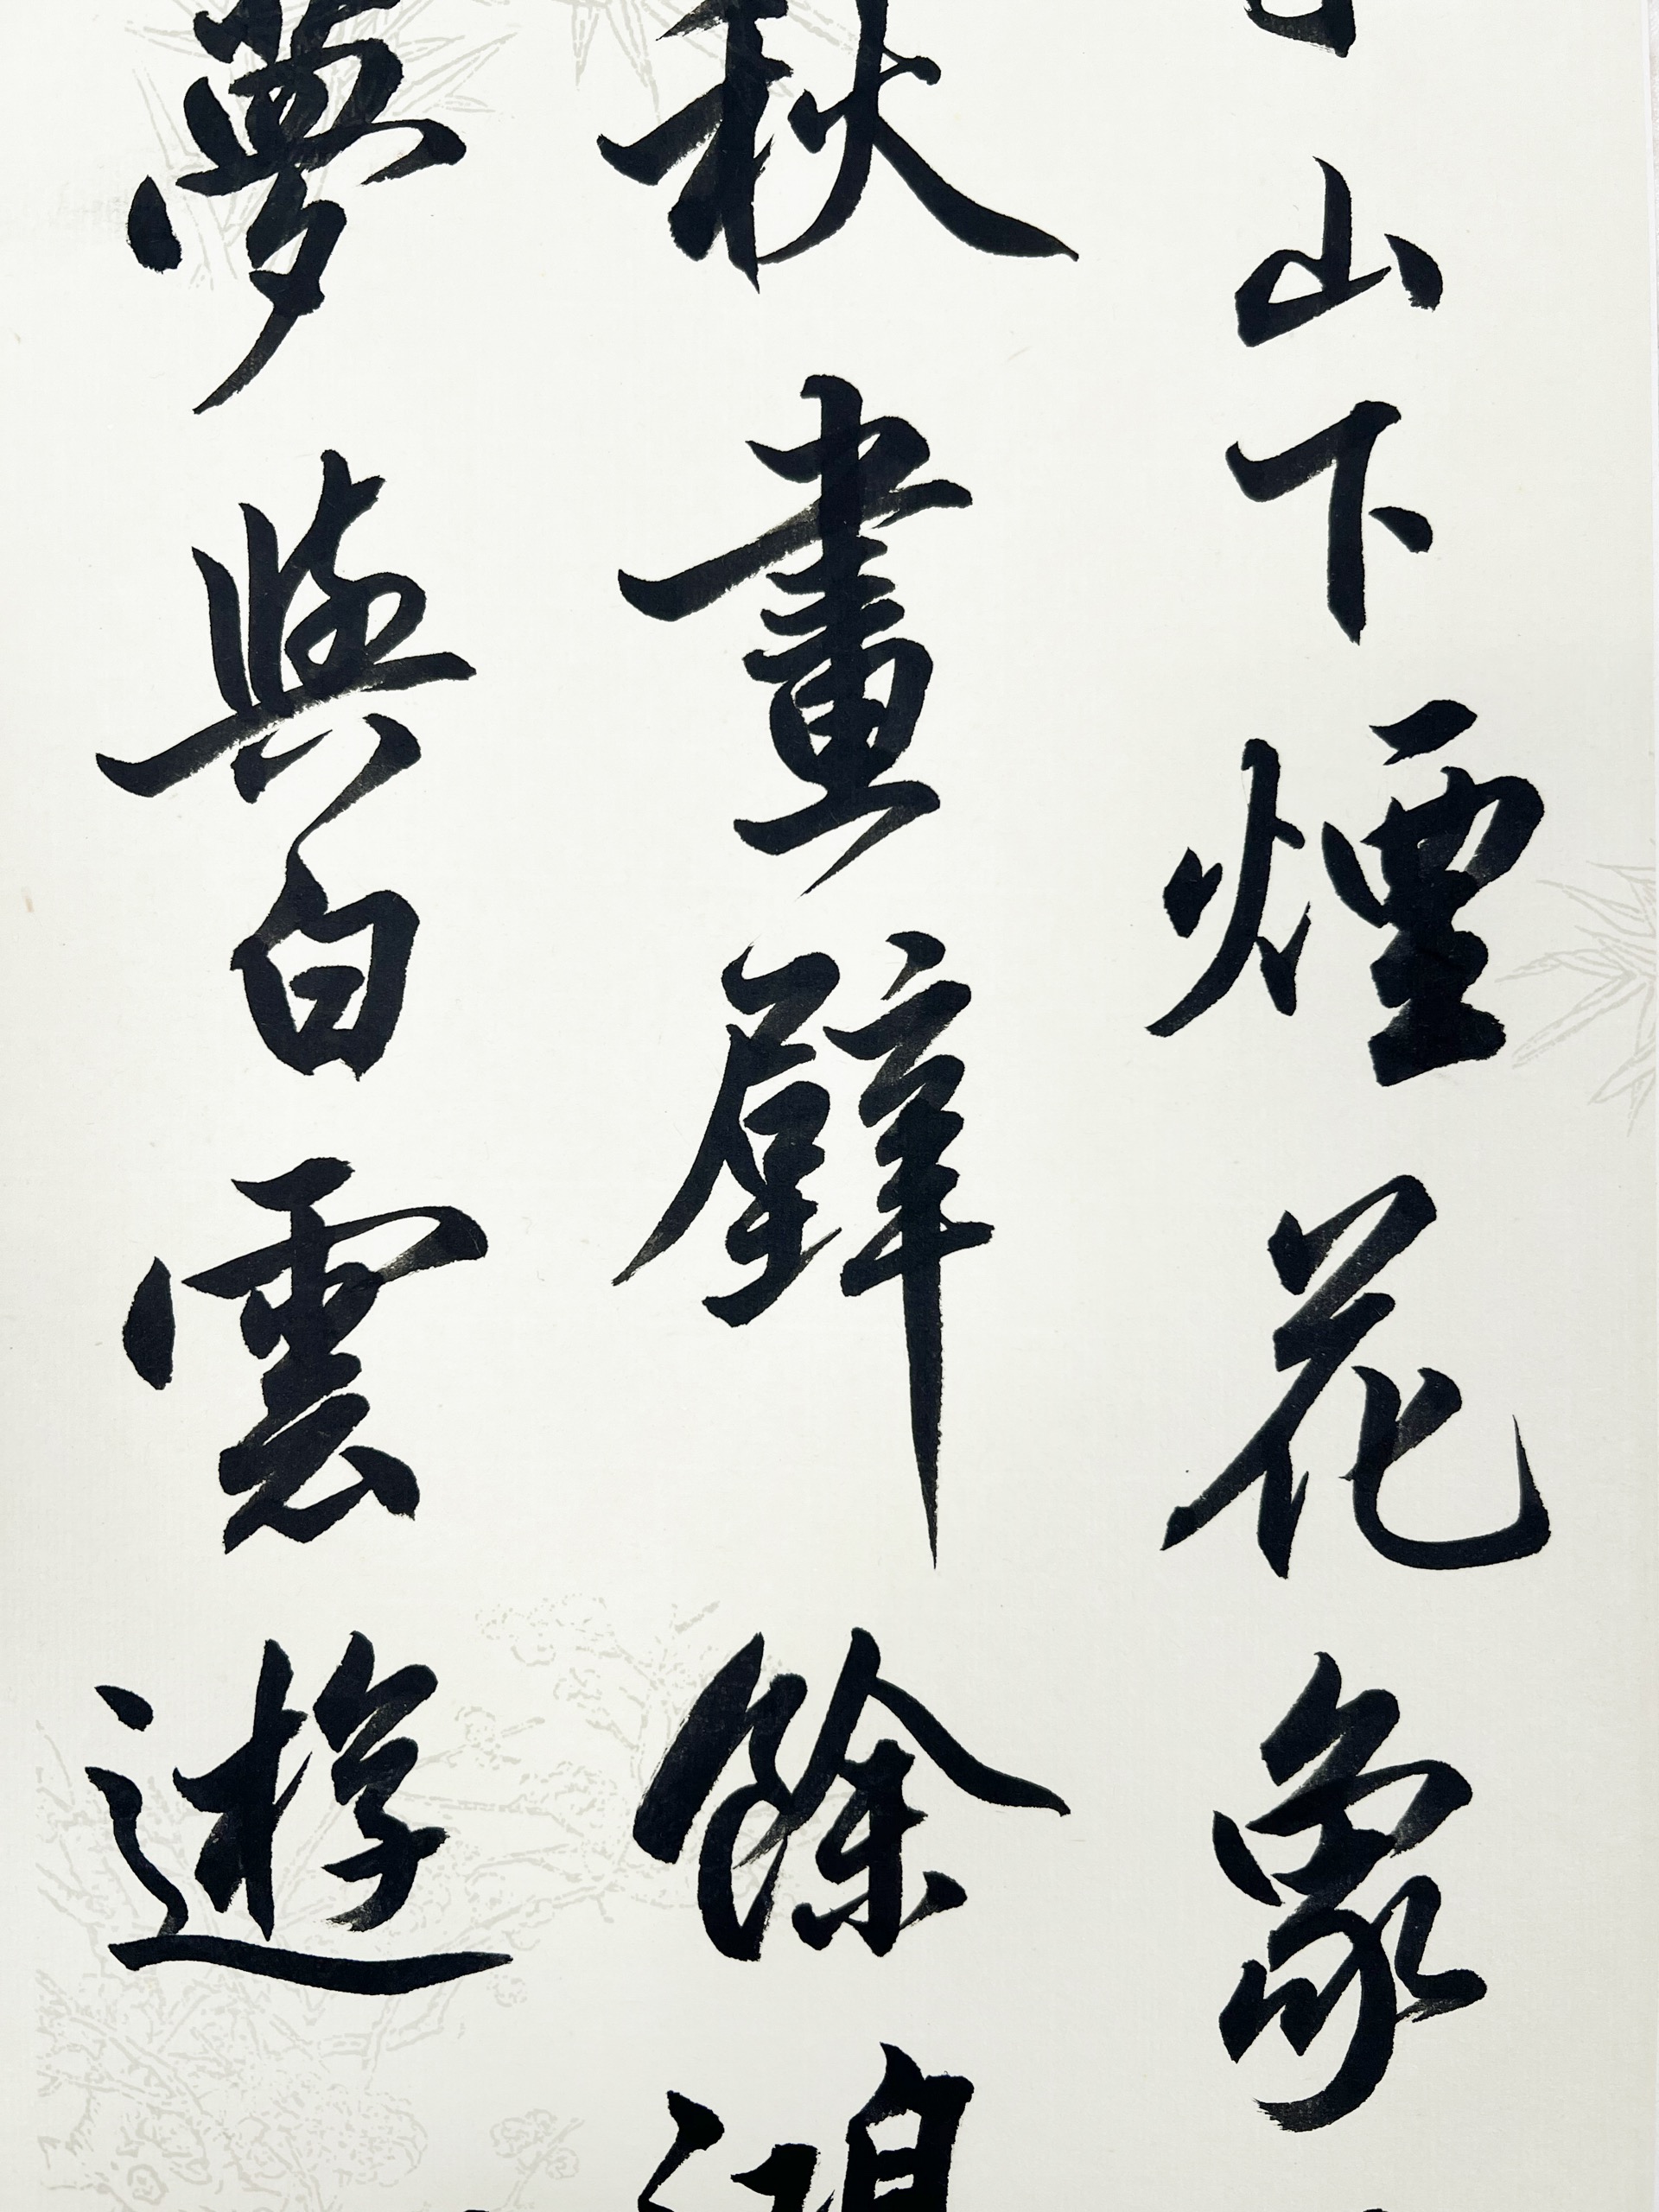 山下煙花象
秋畫壁餘鴻
夢與白雲遊